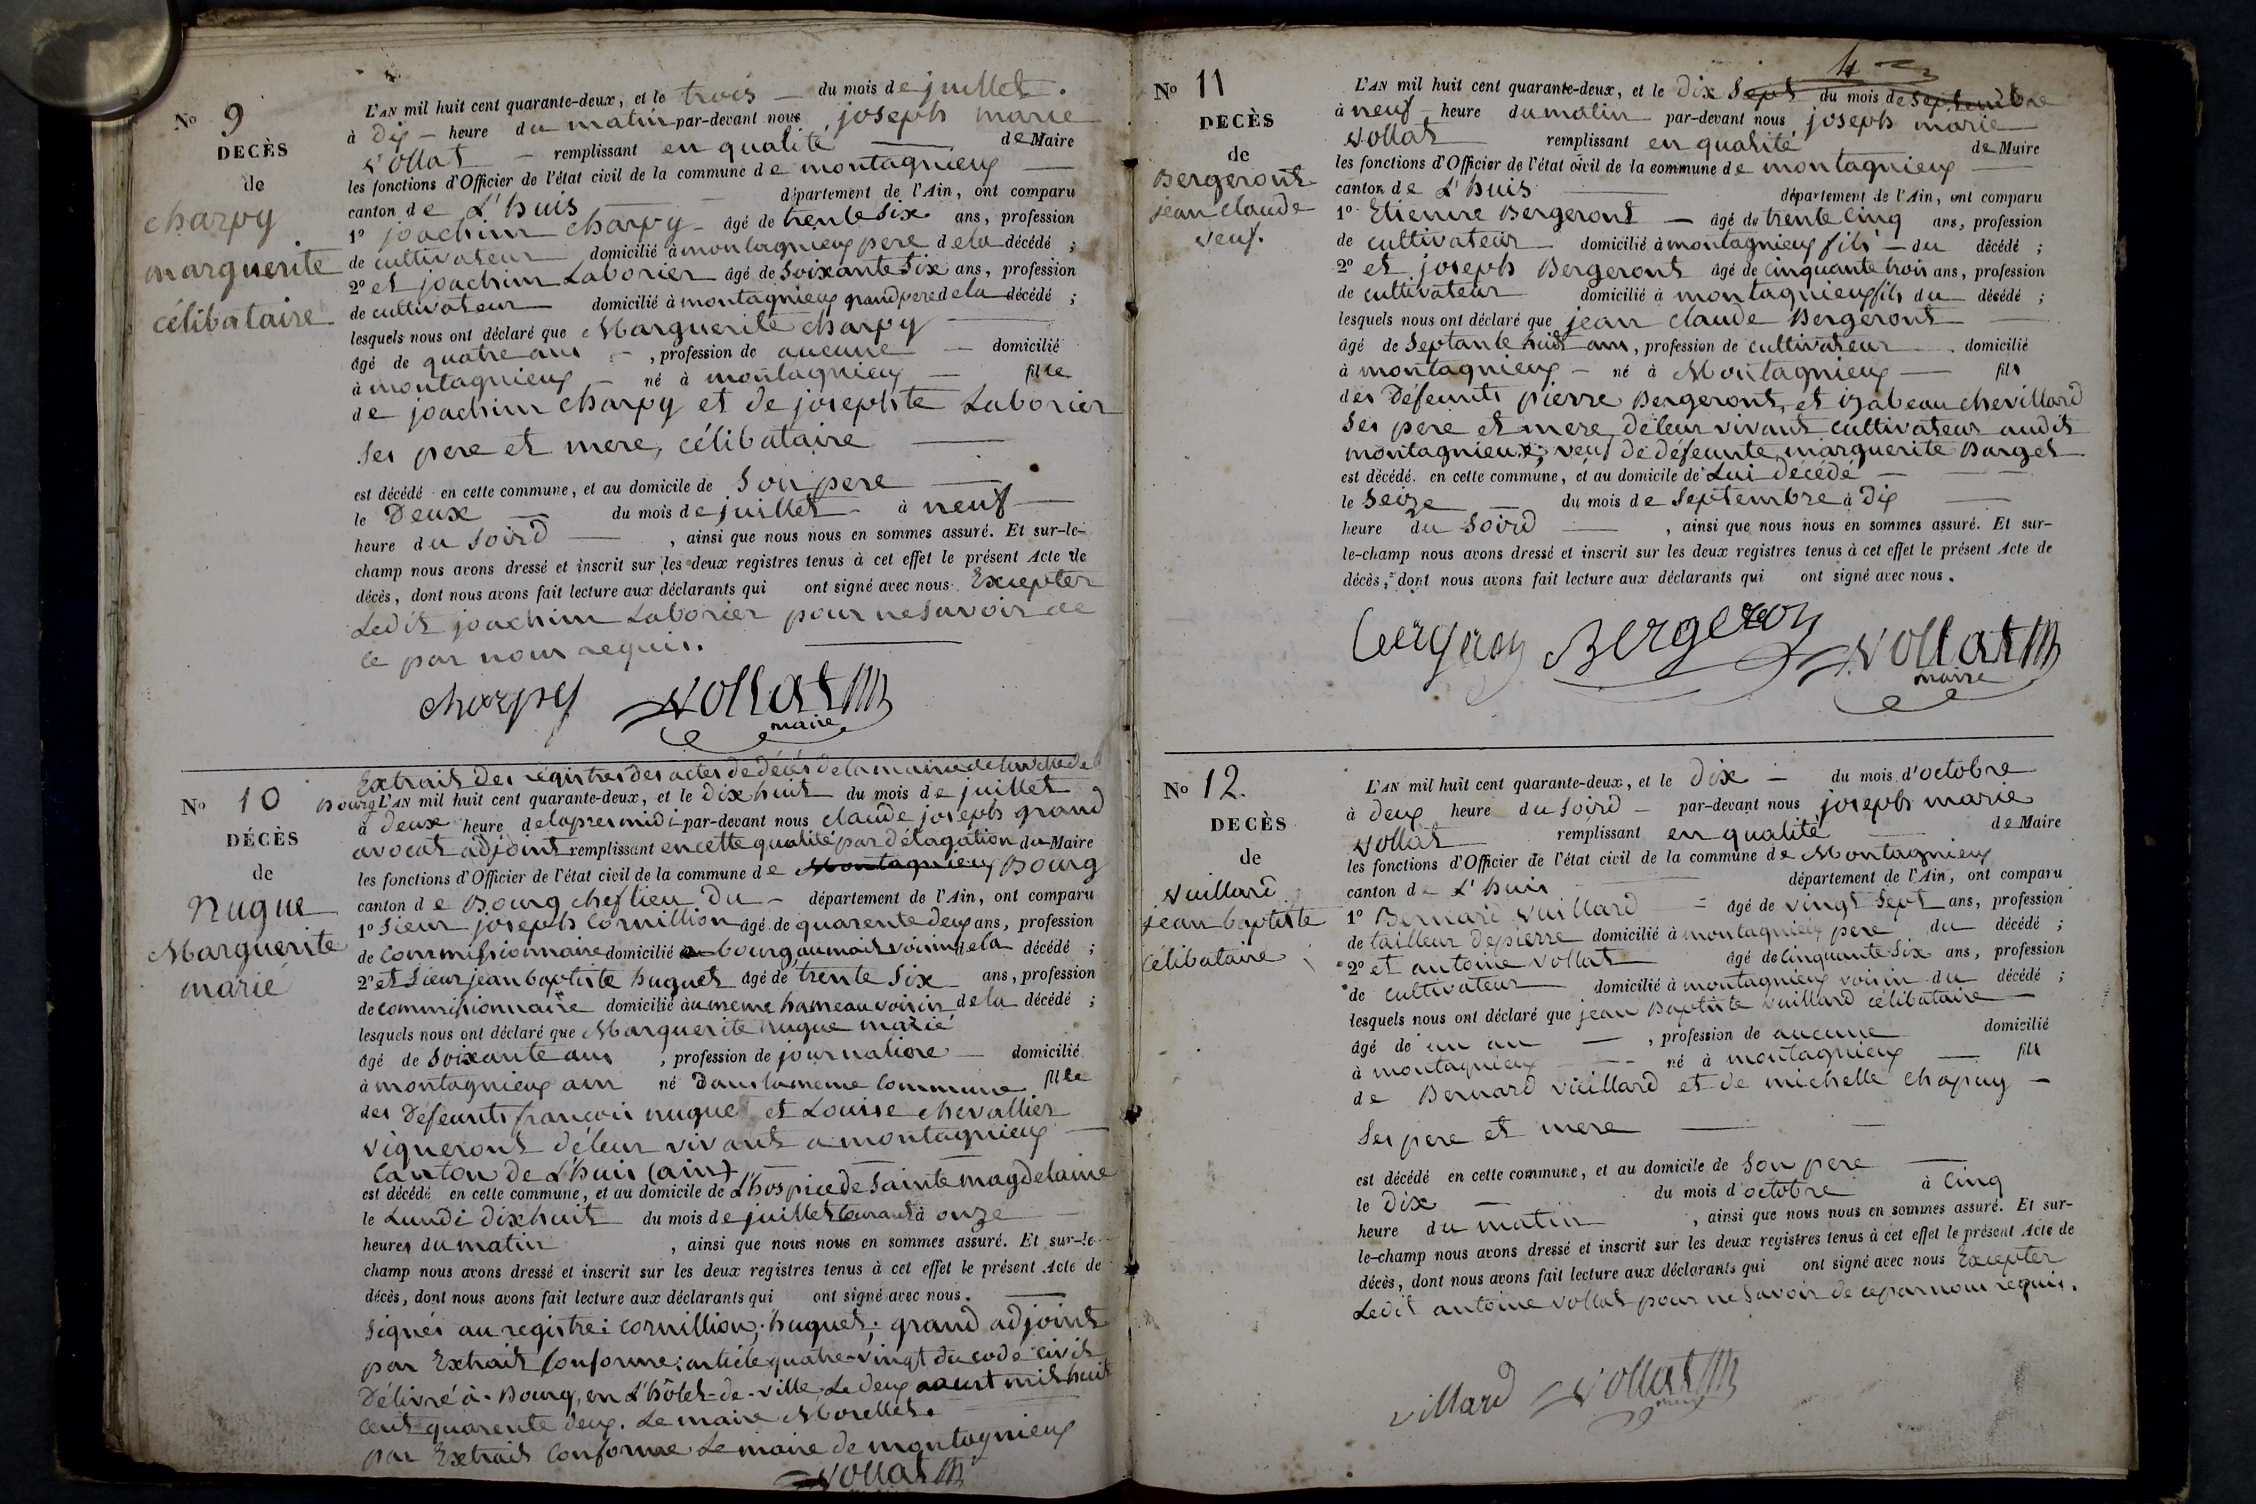 N° 9
DECÈS
de
charpy
marguerite
célibataire
L'AN mil huit cent quarante-deux, et le trois du mois de juillet.
à Dix heure du matin par-devant nous joseph marie
Vollat remplissant en qualité de Maire
les fonctions d'Officier de l'état civil de la commune de montagnieux
canton de L'huis département de l'Ain, ont comparu
1° joachim charpy âgé de trente Six ans, profession
de cultivateur domicilié à montagnieux pere dela décédé ;
2° et joachim Laborier âgé de Soixante Six ans, profession
de cultivateur domicilié à montagnieux grand pere dela décédé ;
lesquels nous ont déclaré que Marguerite charpy
âgé de quatre ans , profession de aucune domicilié
à montagnieux né à montagnieux fille
de joachim charpy et de josephte Laborier
Ses pere et mere, célibataire
est décédé en cette commune, et au domicile de Son pere
le Deux du mois de juillet à neuf
heure du Soird , ainsi que nous nous en sommes assuré. Et sur-le-
champ nous avons dressé et inscrit sur les deux registres tenus à cet effet le présent Acte de
décès, dont nous avons fait lecture aux déclarants qui ont signé avec nous. Excepter
Ledit joachim Laborier pour ne Savoir de
ce par nous requis.
charpy Vollat
maire
N° 10
DÉCÈS
de
Nugue
Marguerite
marié
Extrait des régistres des actes de décés de la mairie de la ville de
Bourg L'AN mil huit cent quarante-deux, et le dix huit du mois de juillet
à deux heure delapres midi par-devant nous claude joseph grand
avocat adjoint remplissant en cette qualité par délagation du Maire
les fonctions d'Officier de l'état civil de la commune de Montagnieux Bourg
canton de Bourg chef lieu du département de l'Ain, ont comparu
1° Sieur joseph Cornillion âgé de quarente deux ans, profession
de Commissionnaire domicilié à bourg, aumait voisin dela décédé ;
2° et Sieur jean baptiste huguet âgé de trente Six ans, profession
de commissionnaire domicilié au meme hameau voisin dela décédé ;
lesquels nous ont déclaré que Marguerite nugue marié
âgé de Soixante ans , profession de journaliere domicilié
à montagnieux ain né Dans la meme Commune fille
des Défeunts françois nugue et Louise chevallier
vigneront de leur vivant a montagnieux
Canton de L'huis (ain)
est décédé en cette commune, et au domicile de L'hospice de Sainte magdelaine
le Lundi dixhuit du mois de juillet Courant à onze
heures du matin , ainsi que nous nous en sommes assuré. Et sur-le-
champ nous avons dressé et inscrit sur les deux registres tenus à cet effet le présent Acte de
décès, dont nous avons fait lecture aux déclarants qui ont signé avec nous.
Signés au registre : cornillion ; huguet ; grand adjoint
par Extrait Conforme : article quatre-vingt du code civil
Délivré à Bourg, en L'hôtel-de-ville Le deux aout mil huit
Cent quarente deux. Le maire Morellet.
par Extrait Conforme Le maire de montagnieux
Vollat
4
N° 11
DECÈS
de
Bergeront
jean claude
veuf.
L'AN mil huit cent quarante-deux, et le dix Sept du mois de Septembre
à neuf heure du matin par-devant nous joseph marie
Vollat remplissant en qualité de Maire
les fonctions d'Officier de l'état civil de la commune de montagnieux
canton de L'huis département de l'Ain, ont comparu
1° Etienne Bergeront âgé de trente Cinq ans, profession
de cultivateur domicilié à montagnieux fils du décédé ;
2° et joseph Bergeront âgé de Cinquante trois ans, profession
de cultivateur domicilié à montagnieux fils du décédé ;
lesquels nous ont déclaré que jean claude Bergeront
âgé de Septante huit ans, profession de cultivateur domicilié
à montagnieux né à Montagnieux fils
des Défeunts pierre Bergeront, et izabeau chevillard
Ses pere et mere de leur vivant cultivateur audit
montagnieux, veuf de défeunte marguerite Barget
est décédé en cette commune, et au domicile de Lui décédé
le Seize du mois de Septembre à Dix
heure du Soird , ainsi que nous nous en sommes assuré. Et sur-
le-champ nous avons dressé et inscrit sur les deux registres tenus à cet effet le présent Acte de
décès, dont nous avons fait lecture aux déclarants qui ont signé avec nous.
bergeron Bergeron Vollat
maire
N° 12.
DECÈS
de
Vuillard
jean baptiste
célibataire
L'AN mil huit cent quarante-deux, et le Dix du mois d'octobre
à deux heure du Soird par-devant nous joseph marie
Vollat remplissant en qualité de Maire
les fonctions d'Officier de l'état civil de la commune de Montagnieux
canton de L'huis département de l'Ain, ont comparu
1° Bernard Vuillard âgé de vingt Sept ans, profession
de tailleur de pierre domicilié à montagnieux pere du décédé ;
2° et antoine Vollat âgé de Cinquante Six ans, profession
de cultivateur domicilié à montagnieux voisin du décédé ;
lesquels nous ont déclaré que jean Baptiste Vuillard célibataire
âgé de un an , profession de aucune domicilié
à montagnieux né à montagnieux fils
de Bernard Vuillard et de michelle chapuy
Ses pere et mere
est décédé en cette commune, et au domicile de Son pere
le Dix du mois d'octobre à Cinq
heure du matin , ainsi que nous nous en sommes assuré. Et sur-
le-champ nous avons dressé et inscrit sur les deux registres tenus à cet effet le présent Acte de
décès, dont nous avons fait lecture aux déclarants qui ont signé avec nous Excepter
Ledit antoine Vollat pour ne Savoir de ce par nous requis.
villard Vollat
maire